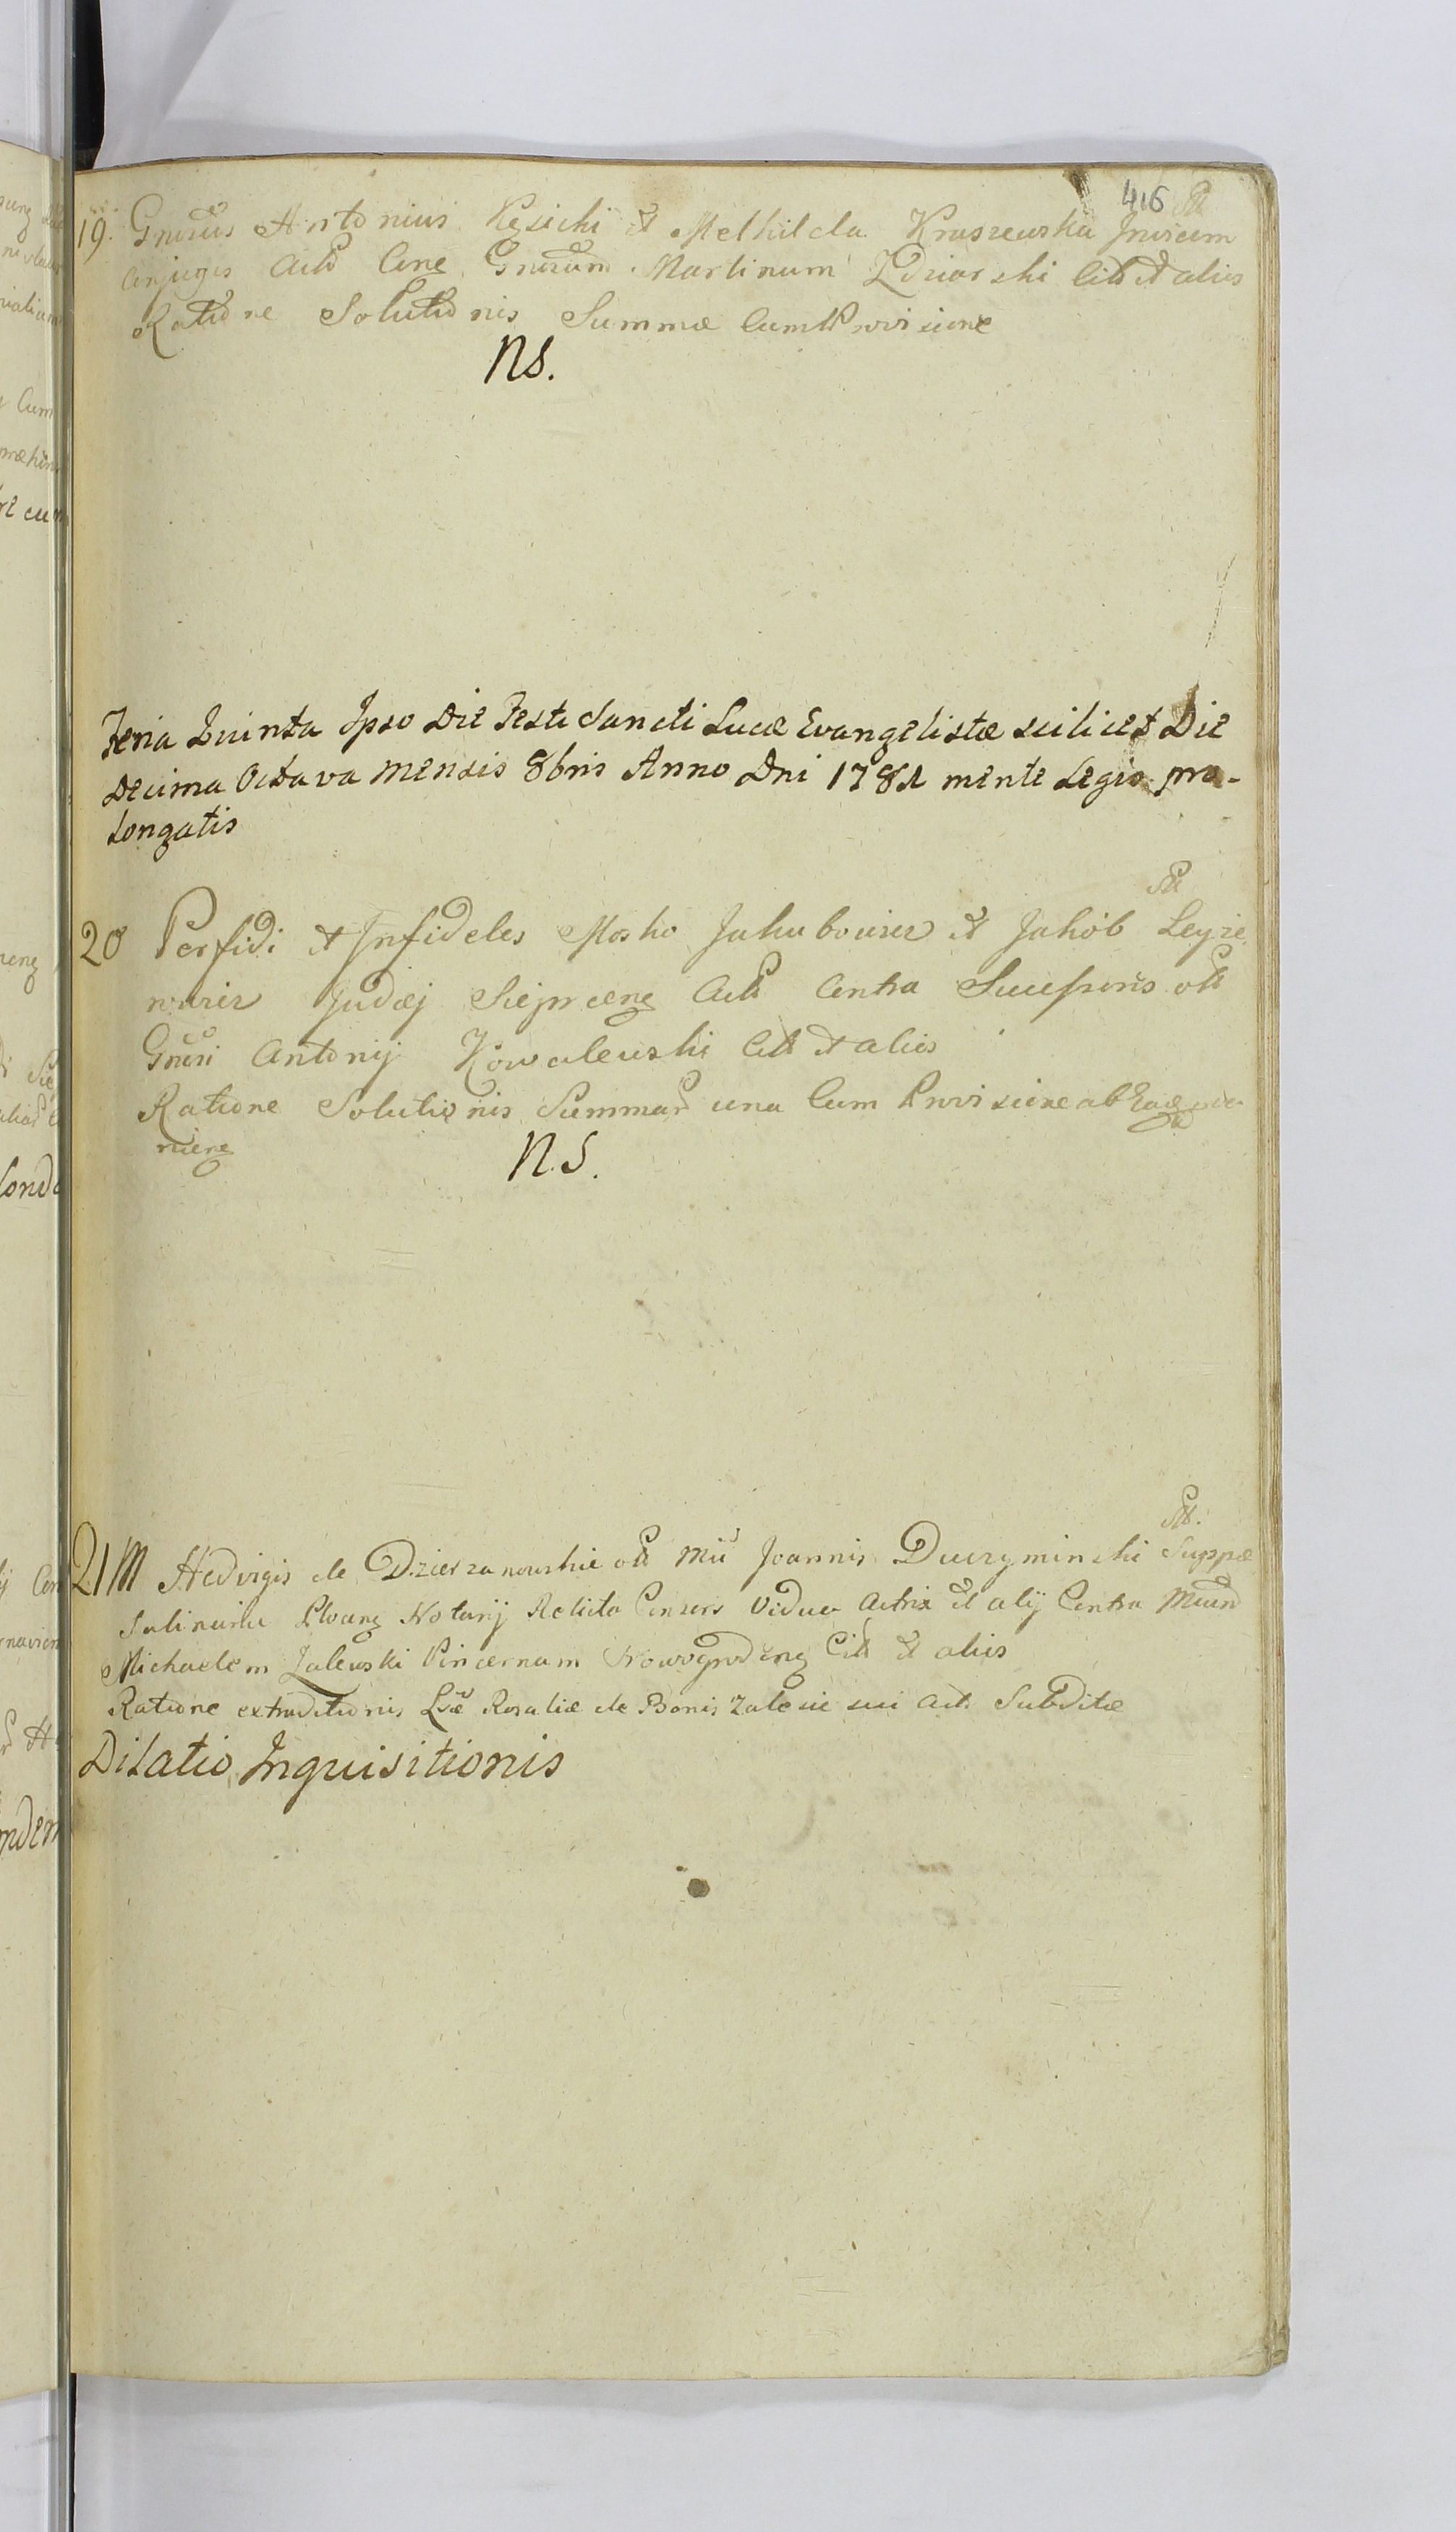 416
19. Gnosus Antonius Kęsicki et Methilda Kraszewska Invicem
Conjuges Act Cone Gnosum Martinum Zdziarski Citt et alios
Ratione Solutionis Summæ Cum Provisione
NS.
Feria Quinta Ipso Die Festi Sancti Lucæ Evangelistæ scilicet Die
Decima Octava mensis 8bris Anno Dni 1781 mente Legis pro-
longatis
20 Perfidi et Infideles Mosko Jakubowicz et Jakób Leyze
rowicz Judæj Siejpcens Act Contra Successores olt
Gnosi Antonij Kowalewski Citt et alios
Ratione Solutionis Summar una Cum Provisione ab
niens
N.S.
21 M Hedvigis de Dzierzanowskie olt Mci Joannis Duczyminski Suppæ
Salinaria Plocens Notarij Relicta Consors Vidua Actrix et alij Contra Mcum
Michaelem Zalewski Pincernam Nowogrodens Citt et alios
Ratione extraditionis Lsæ Rosaliæ de Bonis Zalesie sui act. Subditæ
Dilatio Inquisitionis